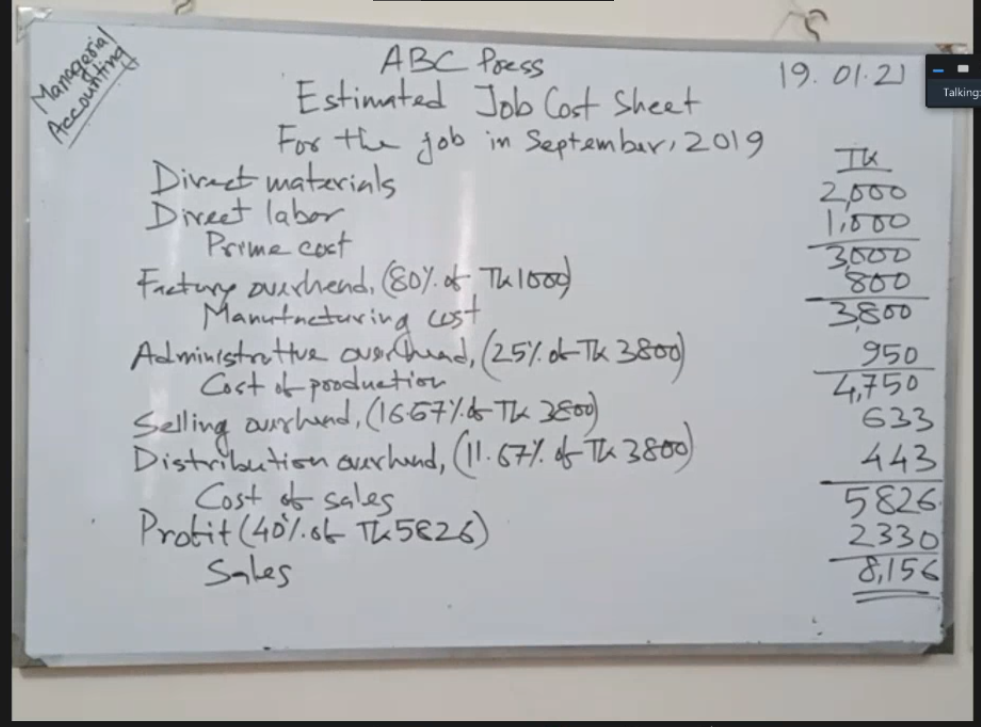 Managerial
Accounting
ABC Press
19.01.21
Estimated Job Cost Sheet
For the job in September, 2019
Tk
Direct materials 2,000
Direct labor 1,000
Prime cost 3,000
Factory overhead, (80% of Tk 1000) 800
Manufacturing cost 3,800
Administrative overhead, (25% of Tk 3800) 950
Cost of production 4,750
Selling overhead, (16.67% of Tk 3800) 633
Distribution overhead, (11.67% of Tk 3800) 443
Cost of sales 5826
Profit (40% of Tk 5826) 2330
Sales 8,156
Talking: